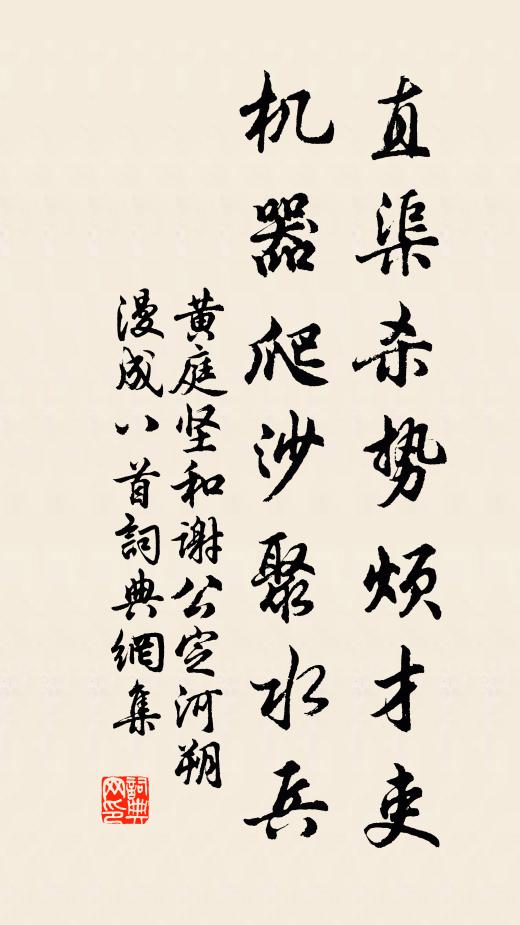 直渠杀势烦才吏
机器爬沙聚水兵
黄庭坚和谢公定河朔
漫成八首詞典網集
詞典
网印